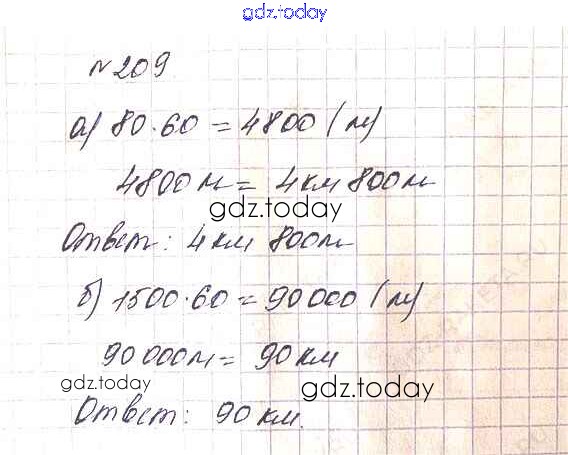 gdz.today
№ 209
а) 80·60 = 4800 (м)
4800 м = 4 км 800 м
gdz.today
Ответ: 4 км 800 м
б) 1500·60 = 90 000 (м)
90 000 м = 90 км
gdz.today gdz.today
Ответ: 90 км.